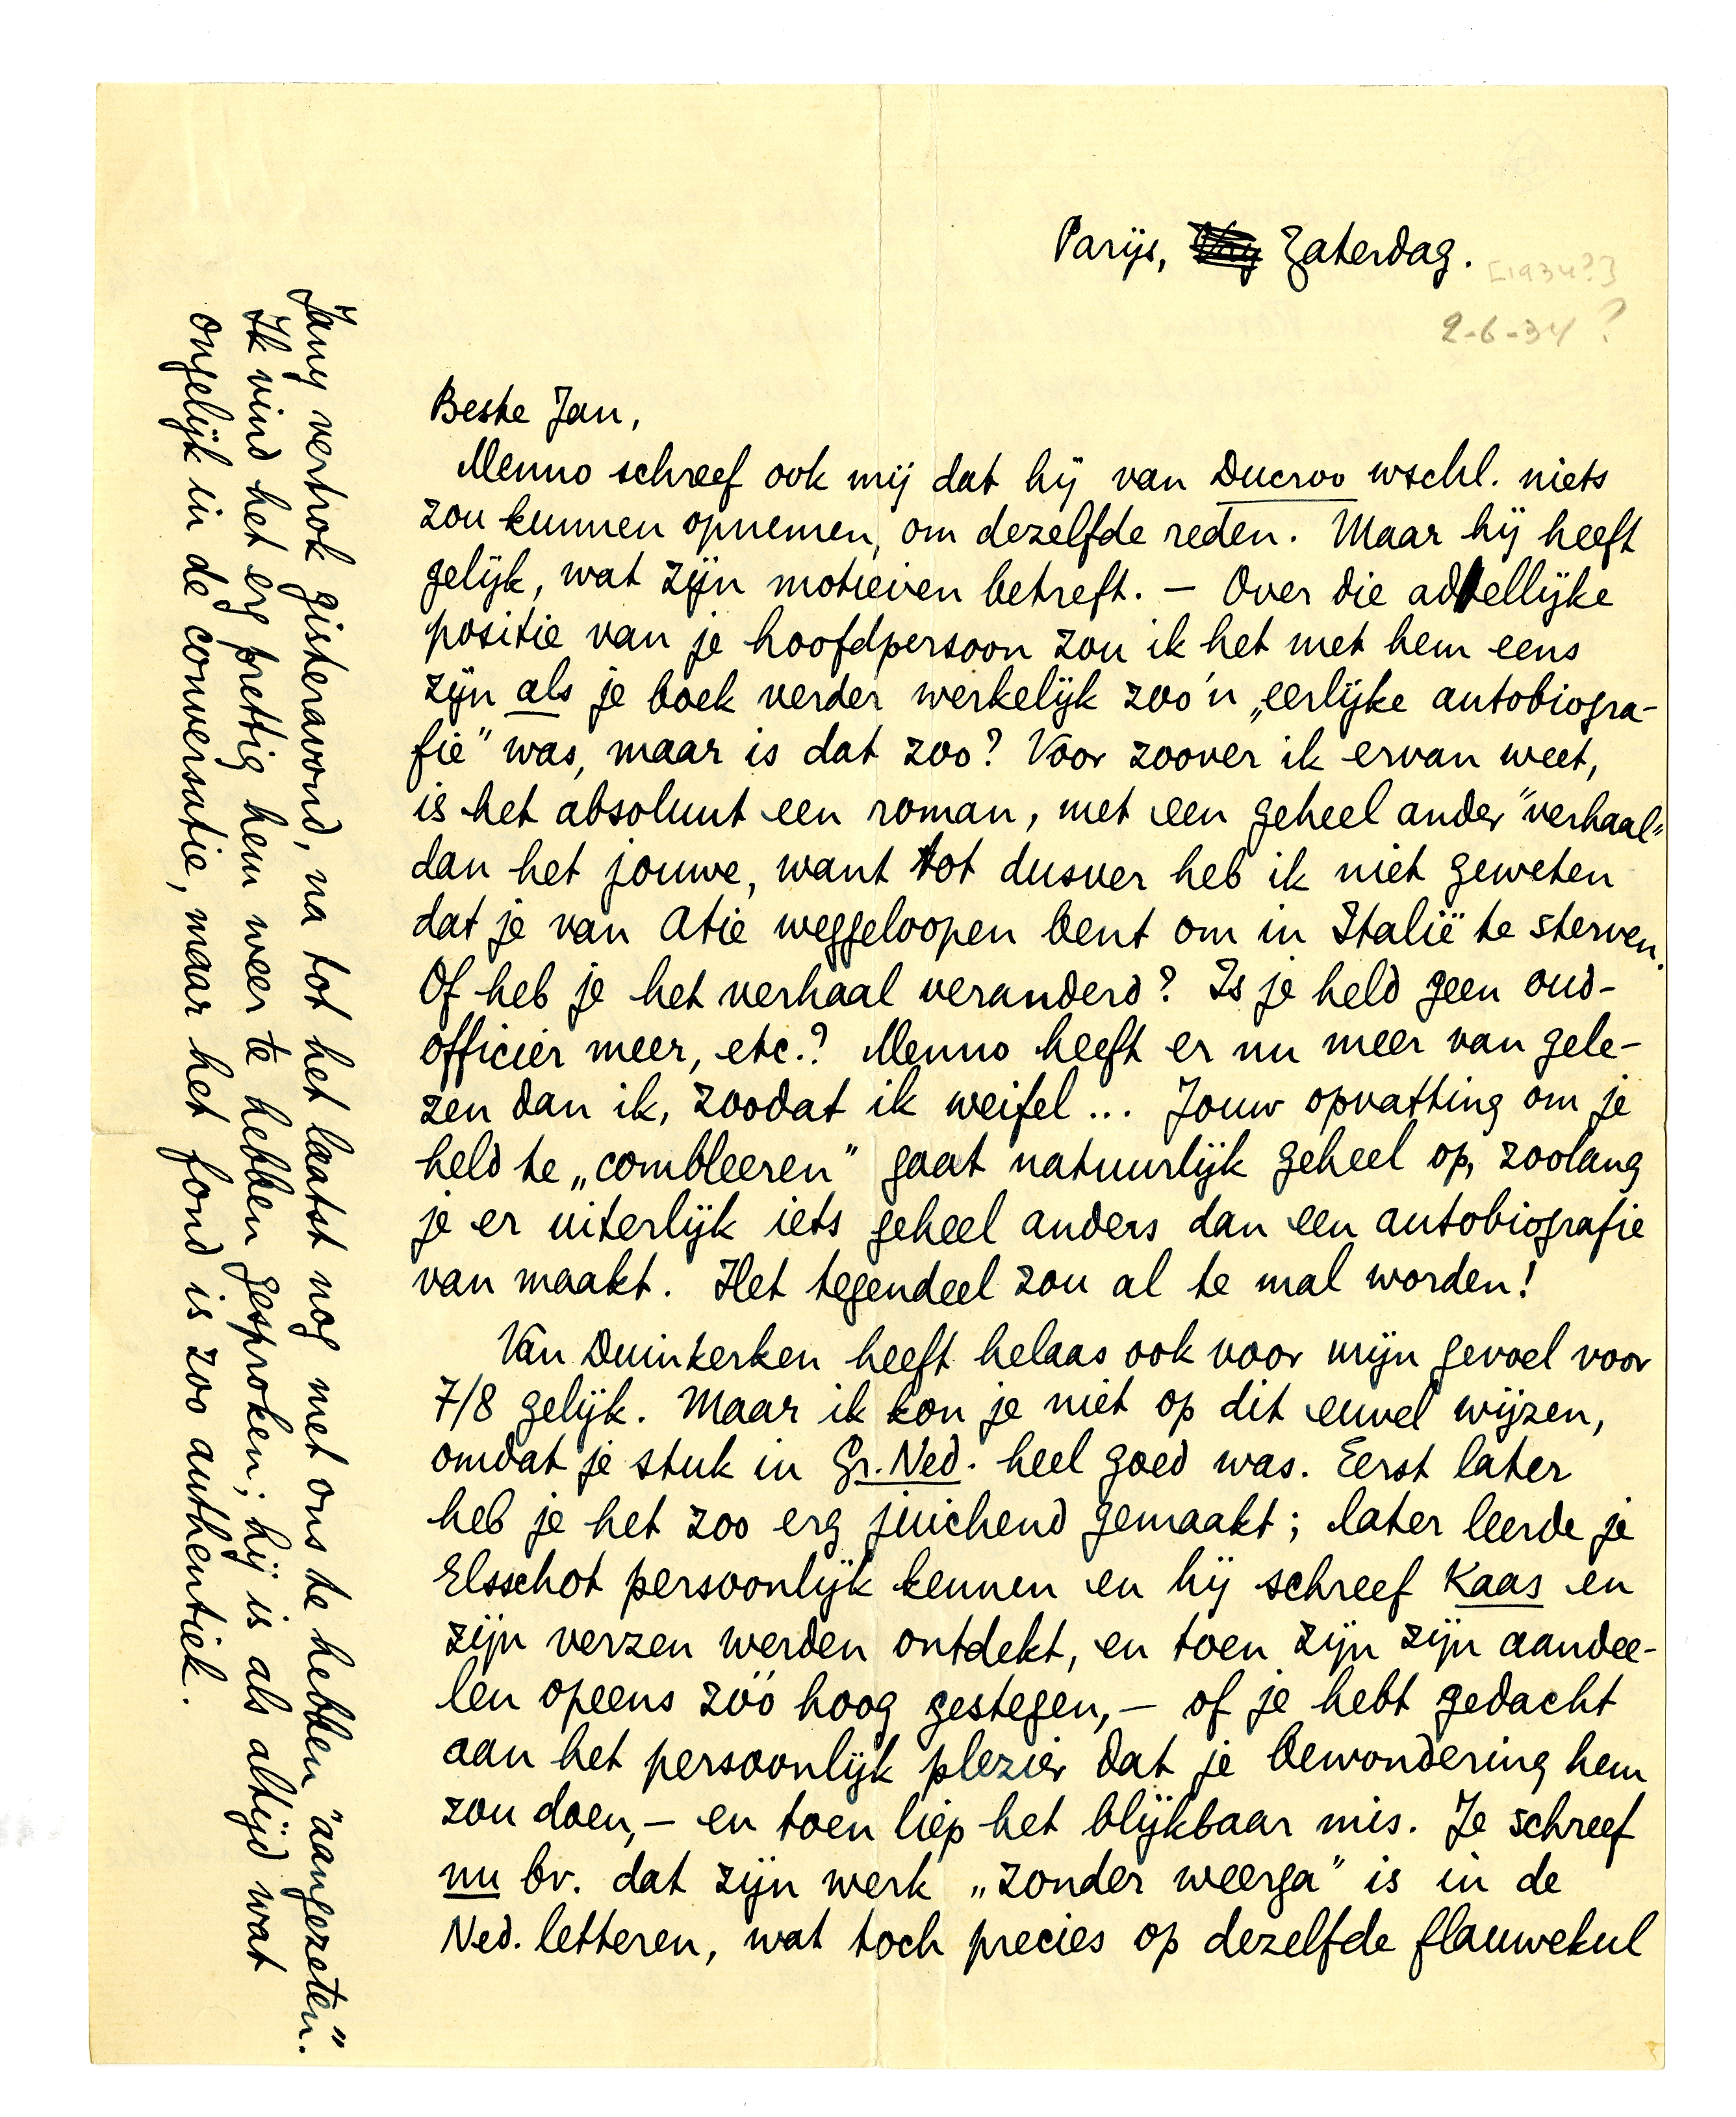 Parijs, Zaterdag.
[1934?]
2-6-34?
Beste Jan,
Menno schreef ook mij dat hij van Ducroo wschl. niets
zou kunnen opnemen, om dezelfde reden. Maar hij heeft
gelijk, wat zijn motieven betreft. – Over die adellijke
positie van je hoofdpersoon zou ik het met hem eens
zijn als je boek verder werkelijk zoo'n „eerlijke autobiogra-
fie” was, maar is dat zoo? Voor zoover ik ervan weet,
is het absoluut een roman, met een geheel ander "verhaal"
dan het jouwe, want tot dusver heb ik niet geweten
dat je van Atie weggeloopen bent om in Italië te sterven.
Of heb je het verhaal veranderd? Is je held geen oud-
officier meer, etc.? Menno heeft er nu meer van gele-
zen dan ik, zoodat ik weifel... Jouw opvatting om je
held te „combleeren” gaat natuurlijk geheel op, zoolang
je er uiterlijk iets geheel anders dan een autobiografie
van maakt. Het tegendeel zou al te mal worden!
Van Duinkerken heeft helaas ook voor mijn gevoel voor
7/8 gelijk. Maar ik kon je niet op dit euvel wijzen,
omdat je stuk in Gr. Ned. heel goed was. Eerst later
heb je het zoo erg juichend gemaakt; later leerde je
Elsschot persoonlijk kennen en hij schreef Kaas en
zijn verzen werden ontdekt, en toen zijn zijn aandee-
len opeens zóó hoog gestegen, – of je hebt gedacht
aan het persoonlijk plezier dat je bewondering hem
zou doen, – en toen liep het blijkbaar mis. Je schreef
nu bv. dat zijn werk „zonder weerga” is in de
Ned. letteren, wat toch precies op dezelfde flauwekul
Jany vertrok gisteravond, na tot het laatst nog met ons te hebben "aangezeten."
Ik vind het erg prettig hem weer te hebben gesproken; hij is als altijd wat
ongelijk in de conversatie, maar het fond is zoo authentiek.